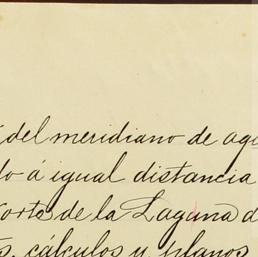 del meridiano de agu
do á igual distancia
orte de la Laguna d
s, cálculos y planos